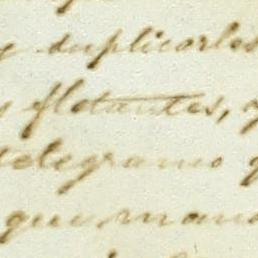 y duplicarles
flotantes,
telegramo
que man